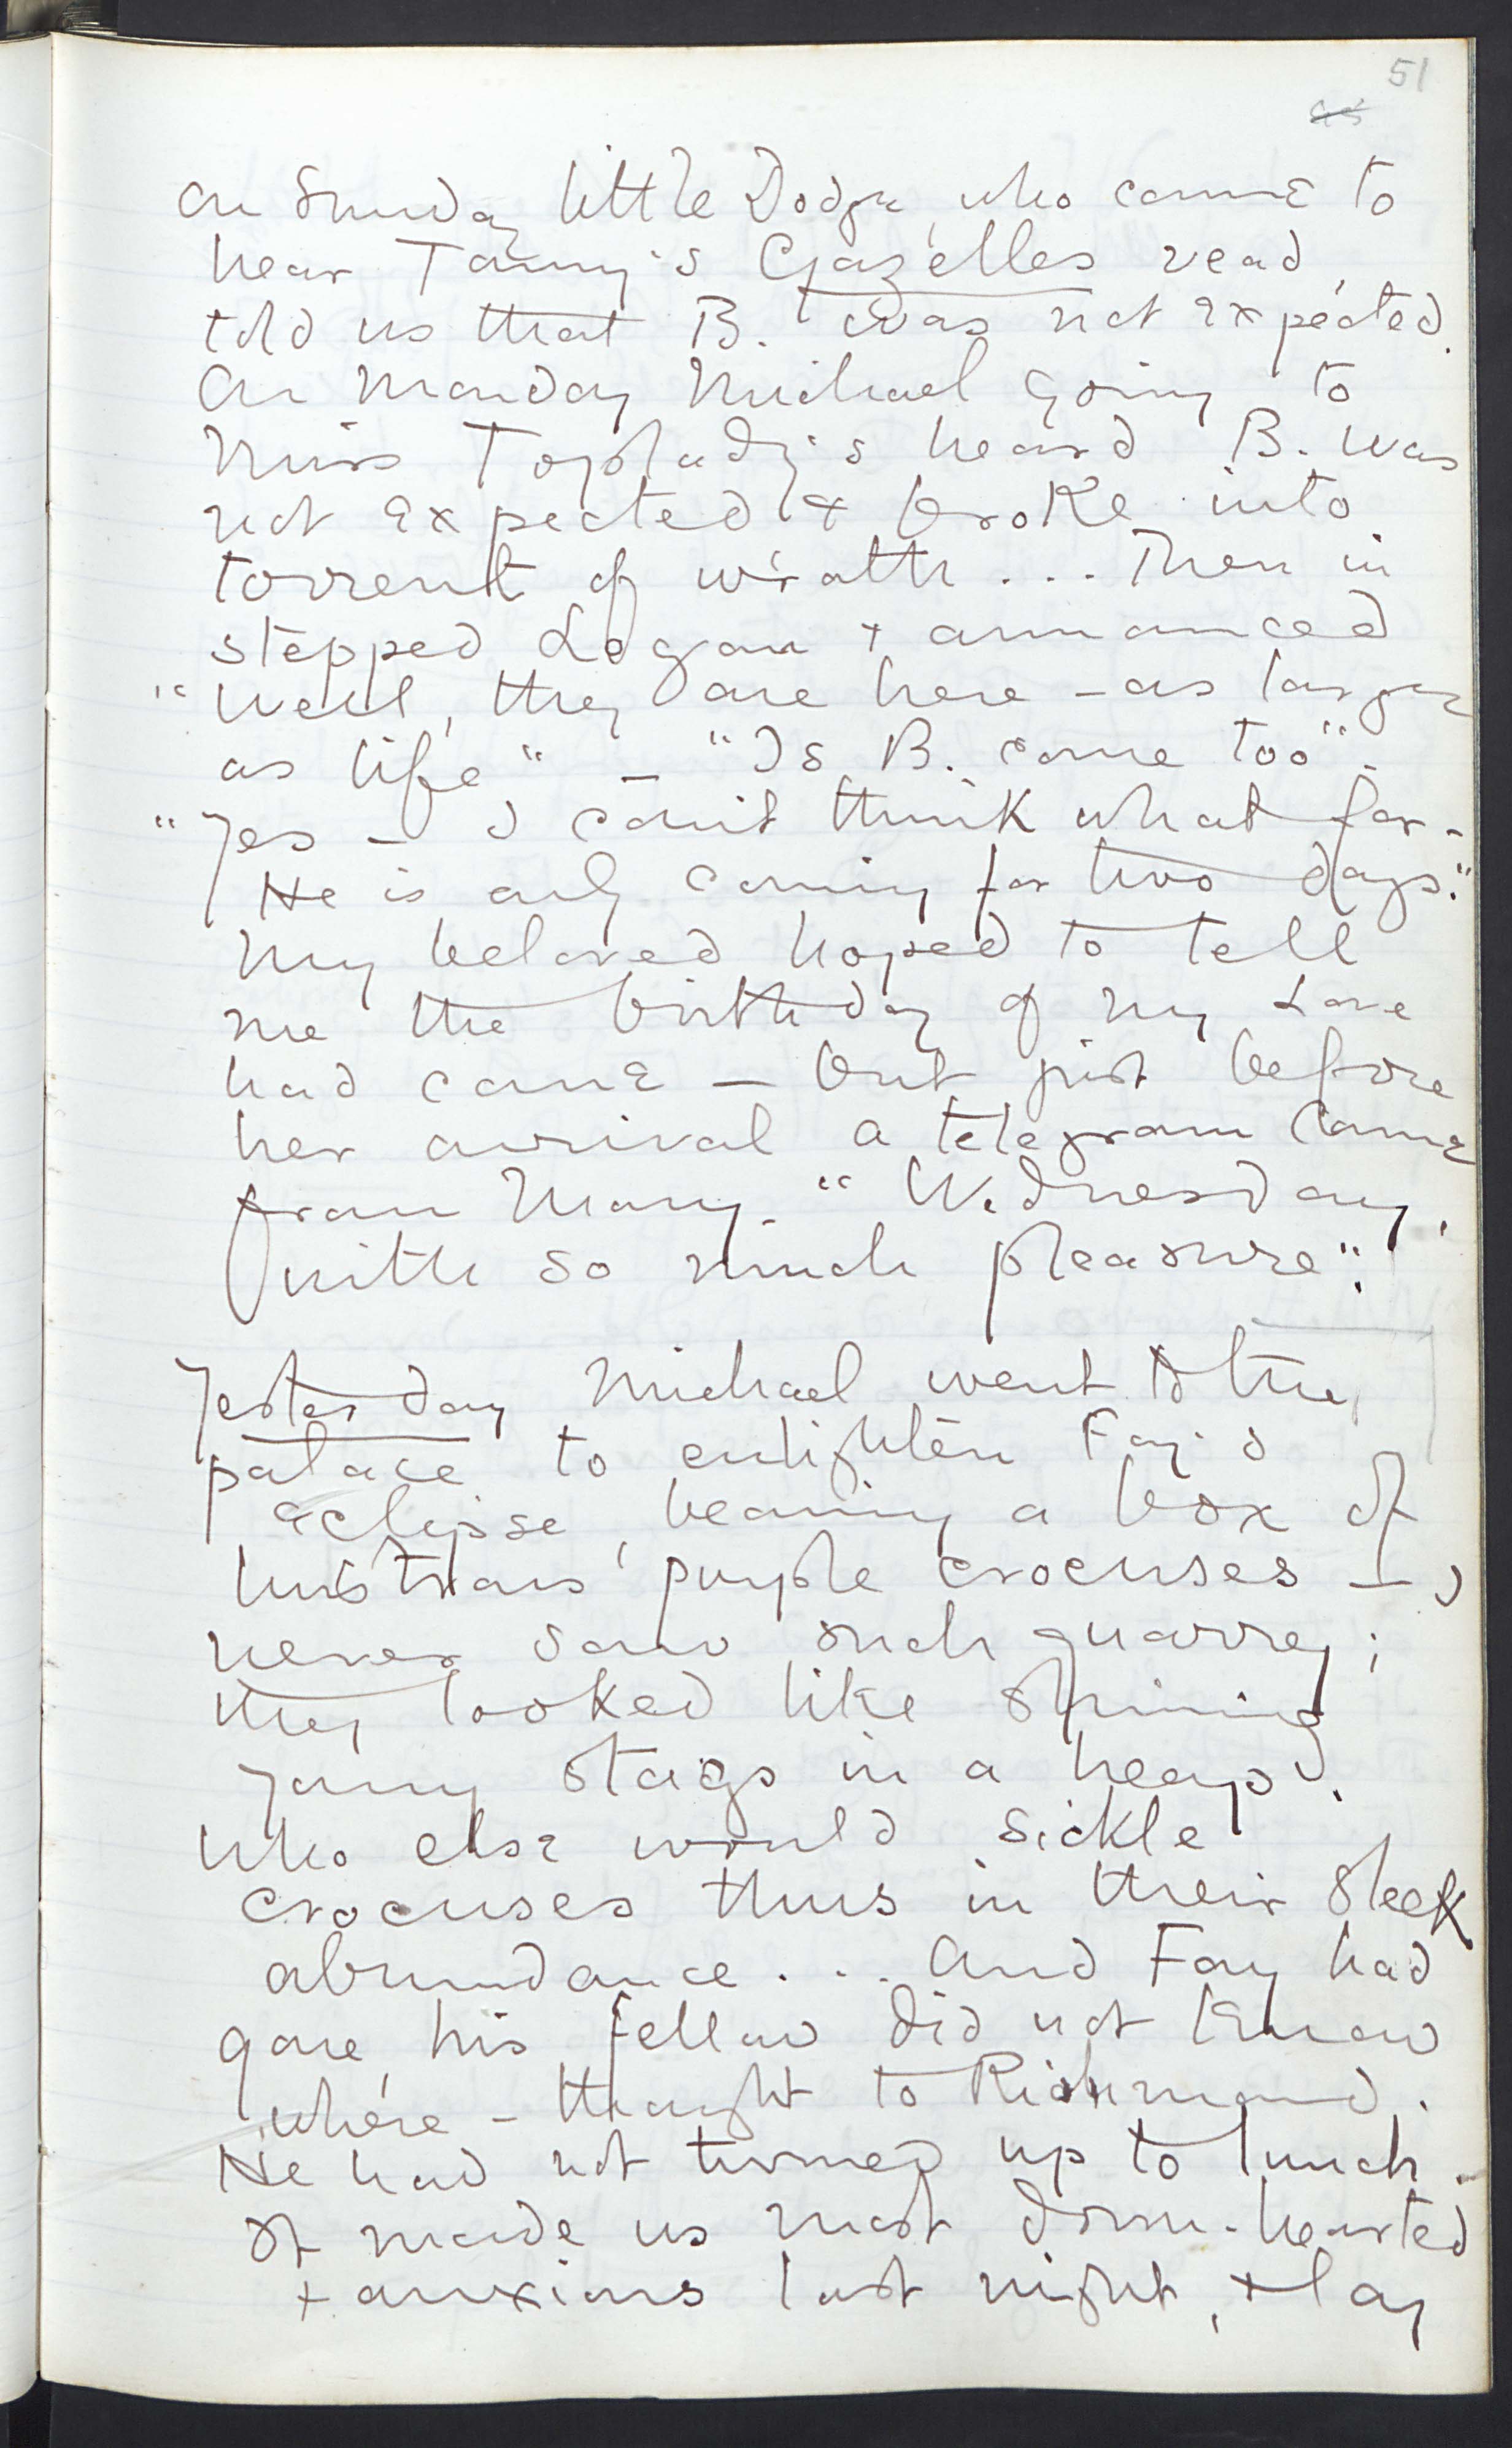 51
On Sunday little Dodge, who came to
hear Tommy's Gazelles read,
told us that B. was not expected.
On Monday Michael going to
Miss Toplady's heard B. was
not expected & broke into
torrent of wrath ... Then in
stepped Logan & announced
"Well, they are here – as large
as life" – "Is B. come too".
"Yes – I can't think what for –
He is only coming for two days."
My beloved hoped to tell
me the birthday of my Love
had come – but just before
her arrival a telegram came
from Mary. "Wednesday,
with so much pleasure".
Yesterday Michael went to the
palace to enlighten Fay's
eclipse, bearing a box of
lustrous purple crocuses – I
never saw such quarry;
they looked like shining
young stags in a heap.
Who else would sickle
crocuses thus in their sleek
abundance ... And Fay had
gone, his fellow did not know
where – thought to Richmond.
He had not turned up to lunch.
It made us most down-hearted
& anxious last night, & lay